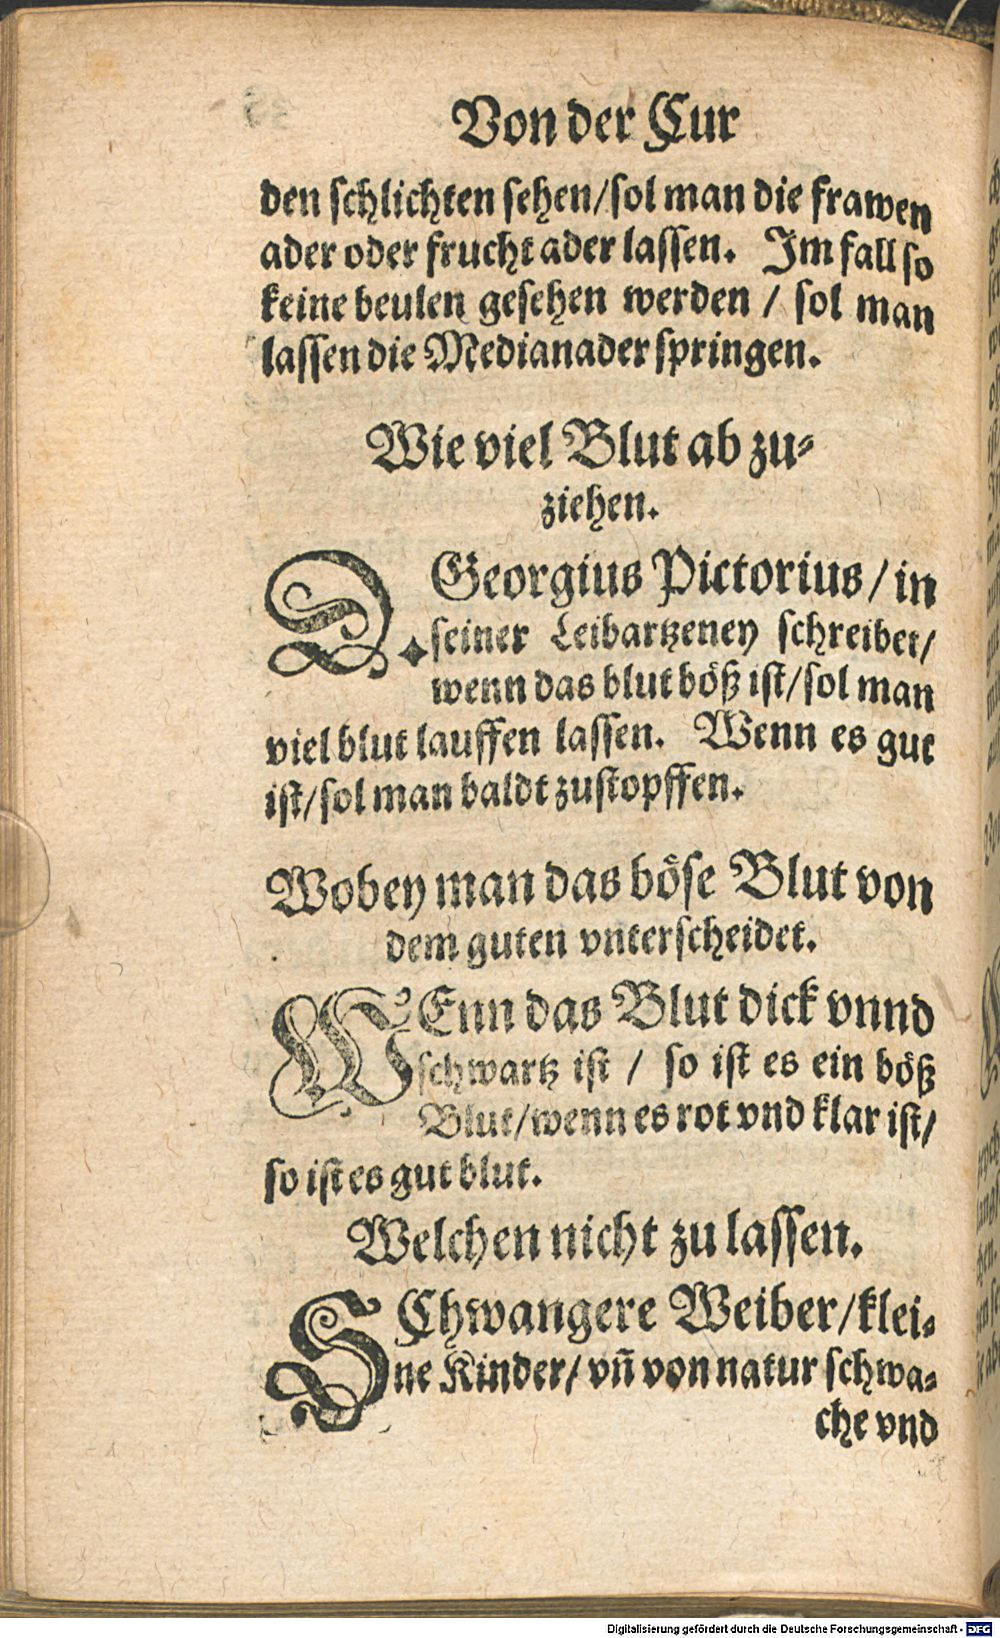 Von der Cur
den ſchlichten ſehen/ſol man die frawen
ader oder frucht ader laſſen. Im fall ſo
keine beulen geſehen werden / ſol man
laſſen die Medianader ſpringen.
Wie viel Blut ab zu⸗
ziehen.
D. Georgius Pictorius/ in
ſeiner Leibartzeney ſchreibet/
wenn das blut böß iſt/ſol man
viel blut lauffen laſſen. Wenn es gut
iſt/ſol man baldt zuſtopffen.
Wobey man das böſe Blut von
dem guten vnterſcheidet.
WEnn das Blut dick vnnd
ſchwartz iſt / ſo iſt es ein böß
Blut/wenn es rot vnd klar iſt/
ſo iſt es gut blut.
Welchen nicht zu laſſen.
SChwangere Weiber/klei⸗
ne Kinder/ vñ von natur ſchwa⸗
che vnd
Digitalisierung gefördert durch die Deutsche Forschungsgemeinschaft - DFG